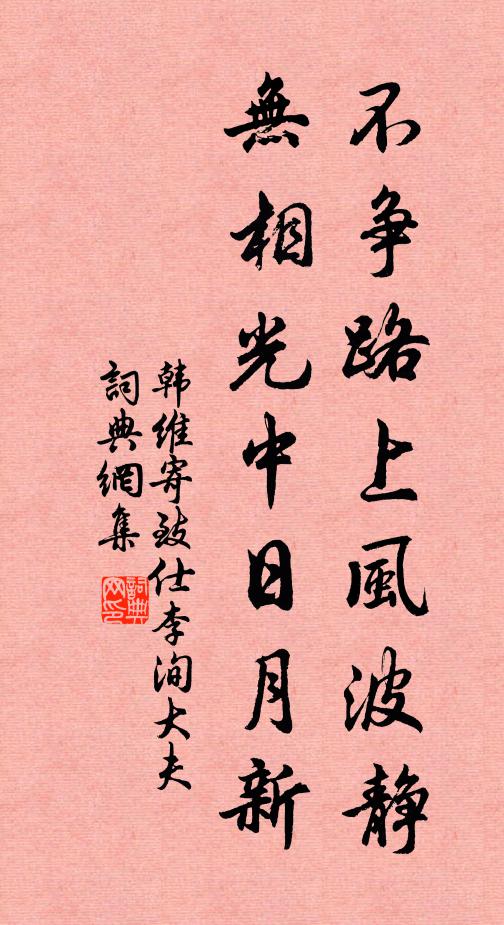 不争路上風波静
無相光中日月新
韩维寄致仕李洵大夫
詞典網集
詞典网印